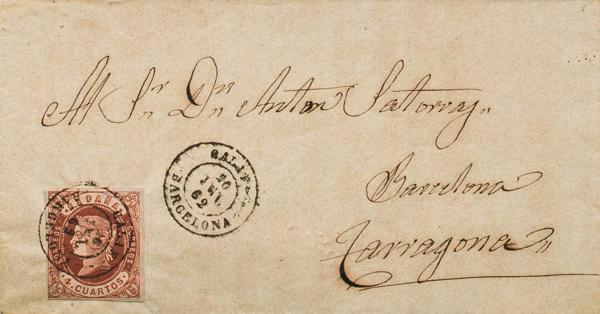 Al Sr Dn Anton Satorras
Barcelona
Tarragona
CALIF
26
JUL
62
BARCELONA
ESPAÑA
CORREOS
4 CUARTOS